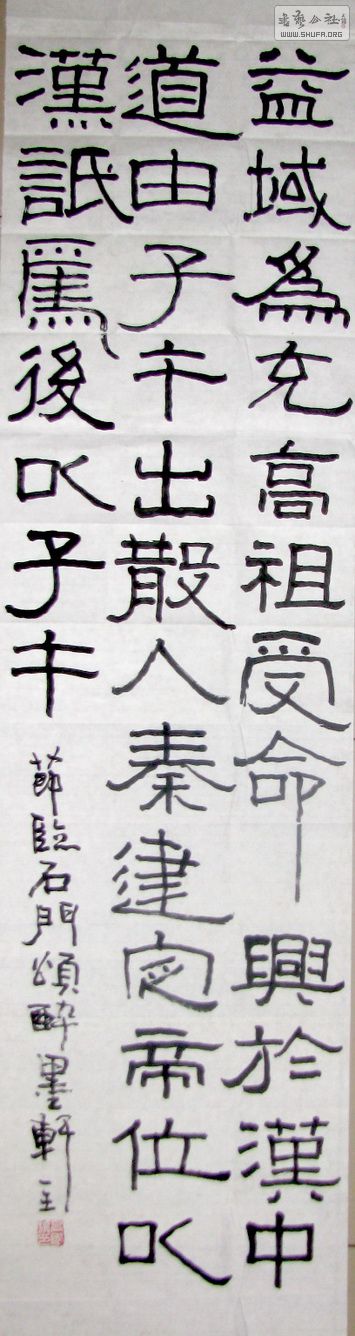 益域為充高祖受命興於漢中
道由子午出散入秦建定帝位以
漢詆焉後以子午
節臨石門頌醉墨軒主
書藝公社
WWW.SHUFA.ORG